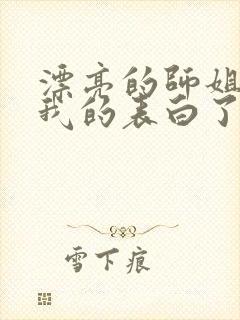 漂亮的师姐
我的表白了
雪下痕